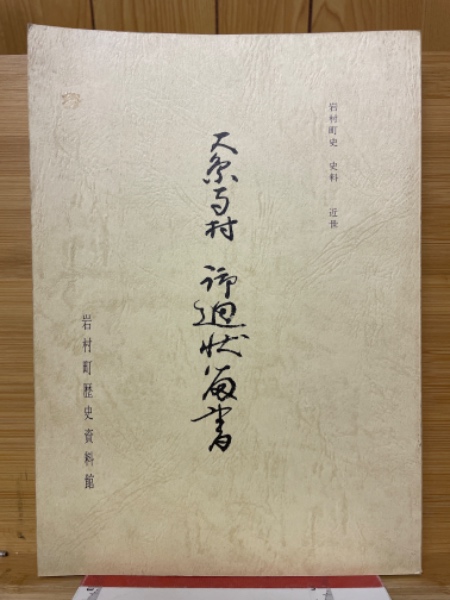 岩村町史 史料 近世
大円寺村 御廻状留書
岩村町歴史資料館